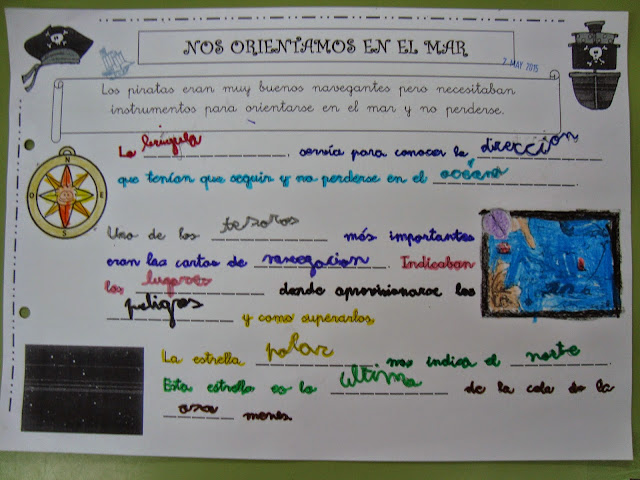 NOS ORIENTAMOS EN EL MAR
2 MAY 2015
Los piratas eran muy buenos navegantes pero necesitaban
instrumentos para orientarse en el mar y no perderse.
La brújula servía para conocer la dirección
que tenían que seguir y no perderse en el océano.
N
O E
S
Uno de los tesoros más importantes
eran las cartas de navegacion. Indicaban
los lugares donde aprovisionarse los
peligros y como superarlos.
La estrella polar nos indica el norte.
Esta estrella es la última de la cola de la
osa menor.